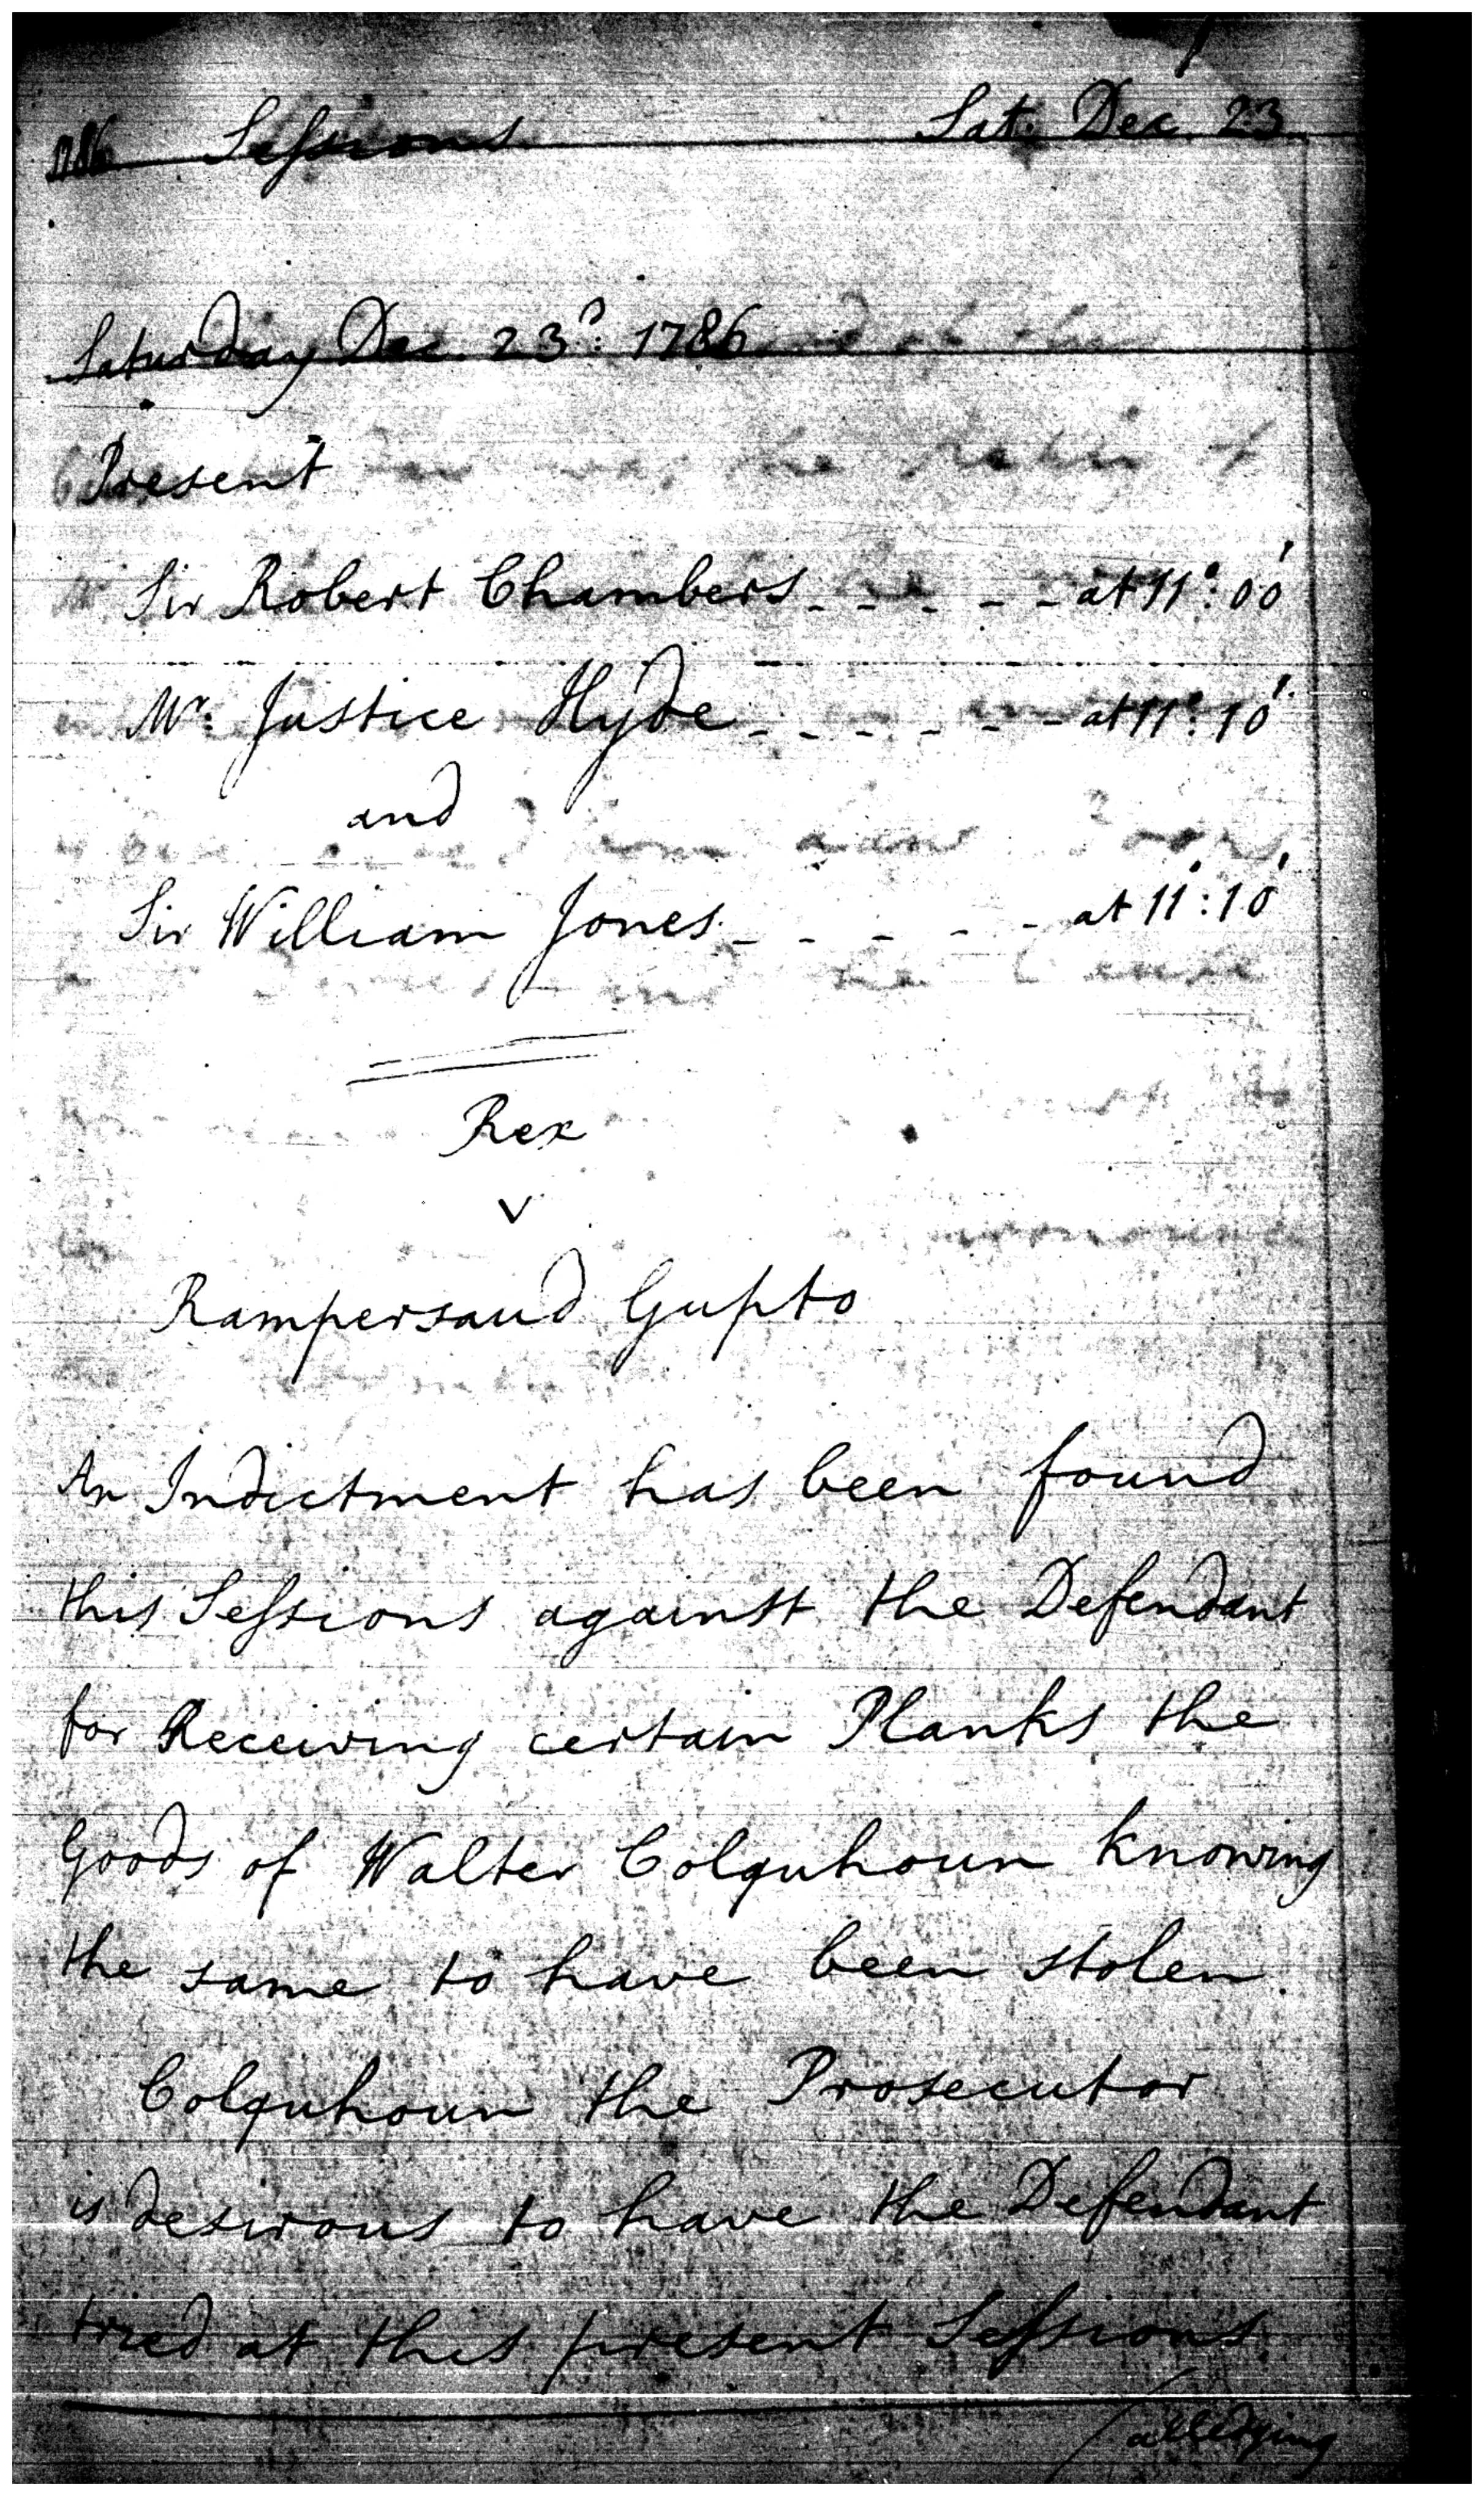 1786 Sessions Sat. Dec. 23
Saturday Dec. 23d: 1786
Present
Sir Robert Chambers - - - - - at 11°: 00'
Mr: Justice Hyde - - - - - - at 11°: 10'
and
Sir William Jones - - - - - at 11°: 10'
Rex
v
Rampersaud Gupto
An Indictment has been found
this Sessions against the Defendant
for Receiving certain Planks the
Goods of Walter Colquhoun knowing
the same to have been stolen.
Colquhoun the Prosecutor
is desirous to have the Defendant
tried at this present Sessions.
/alledging